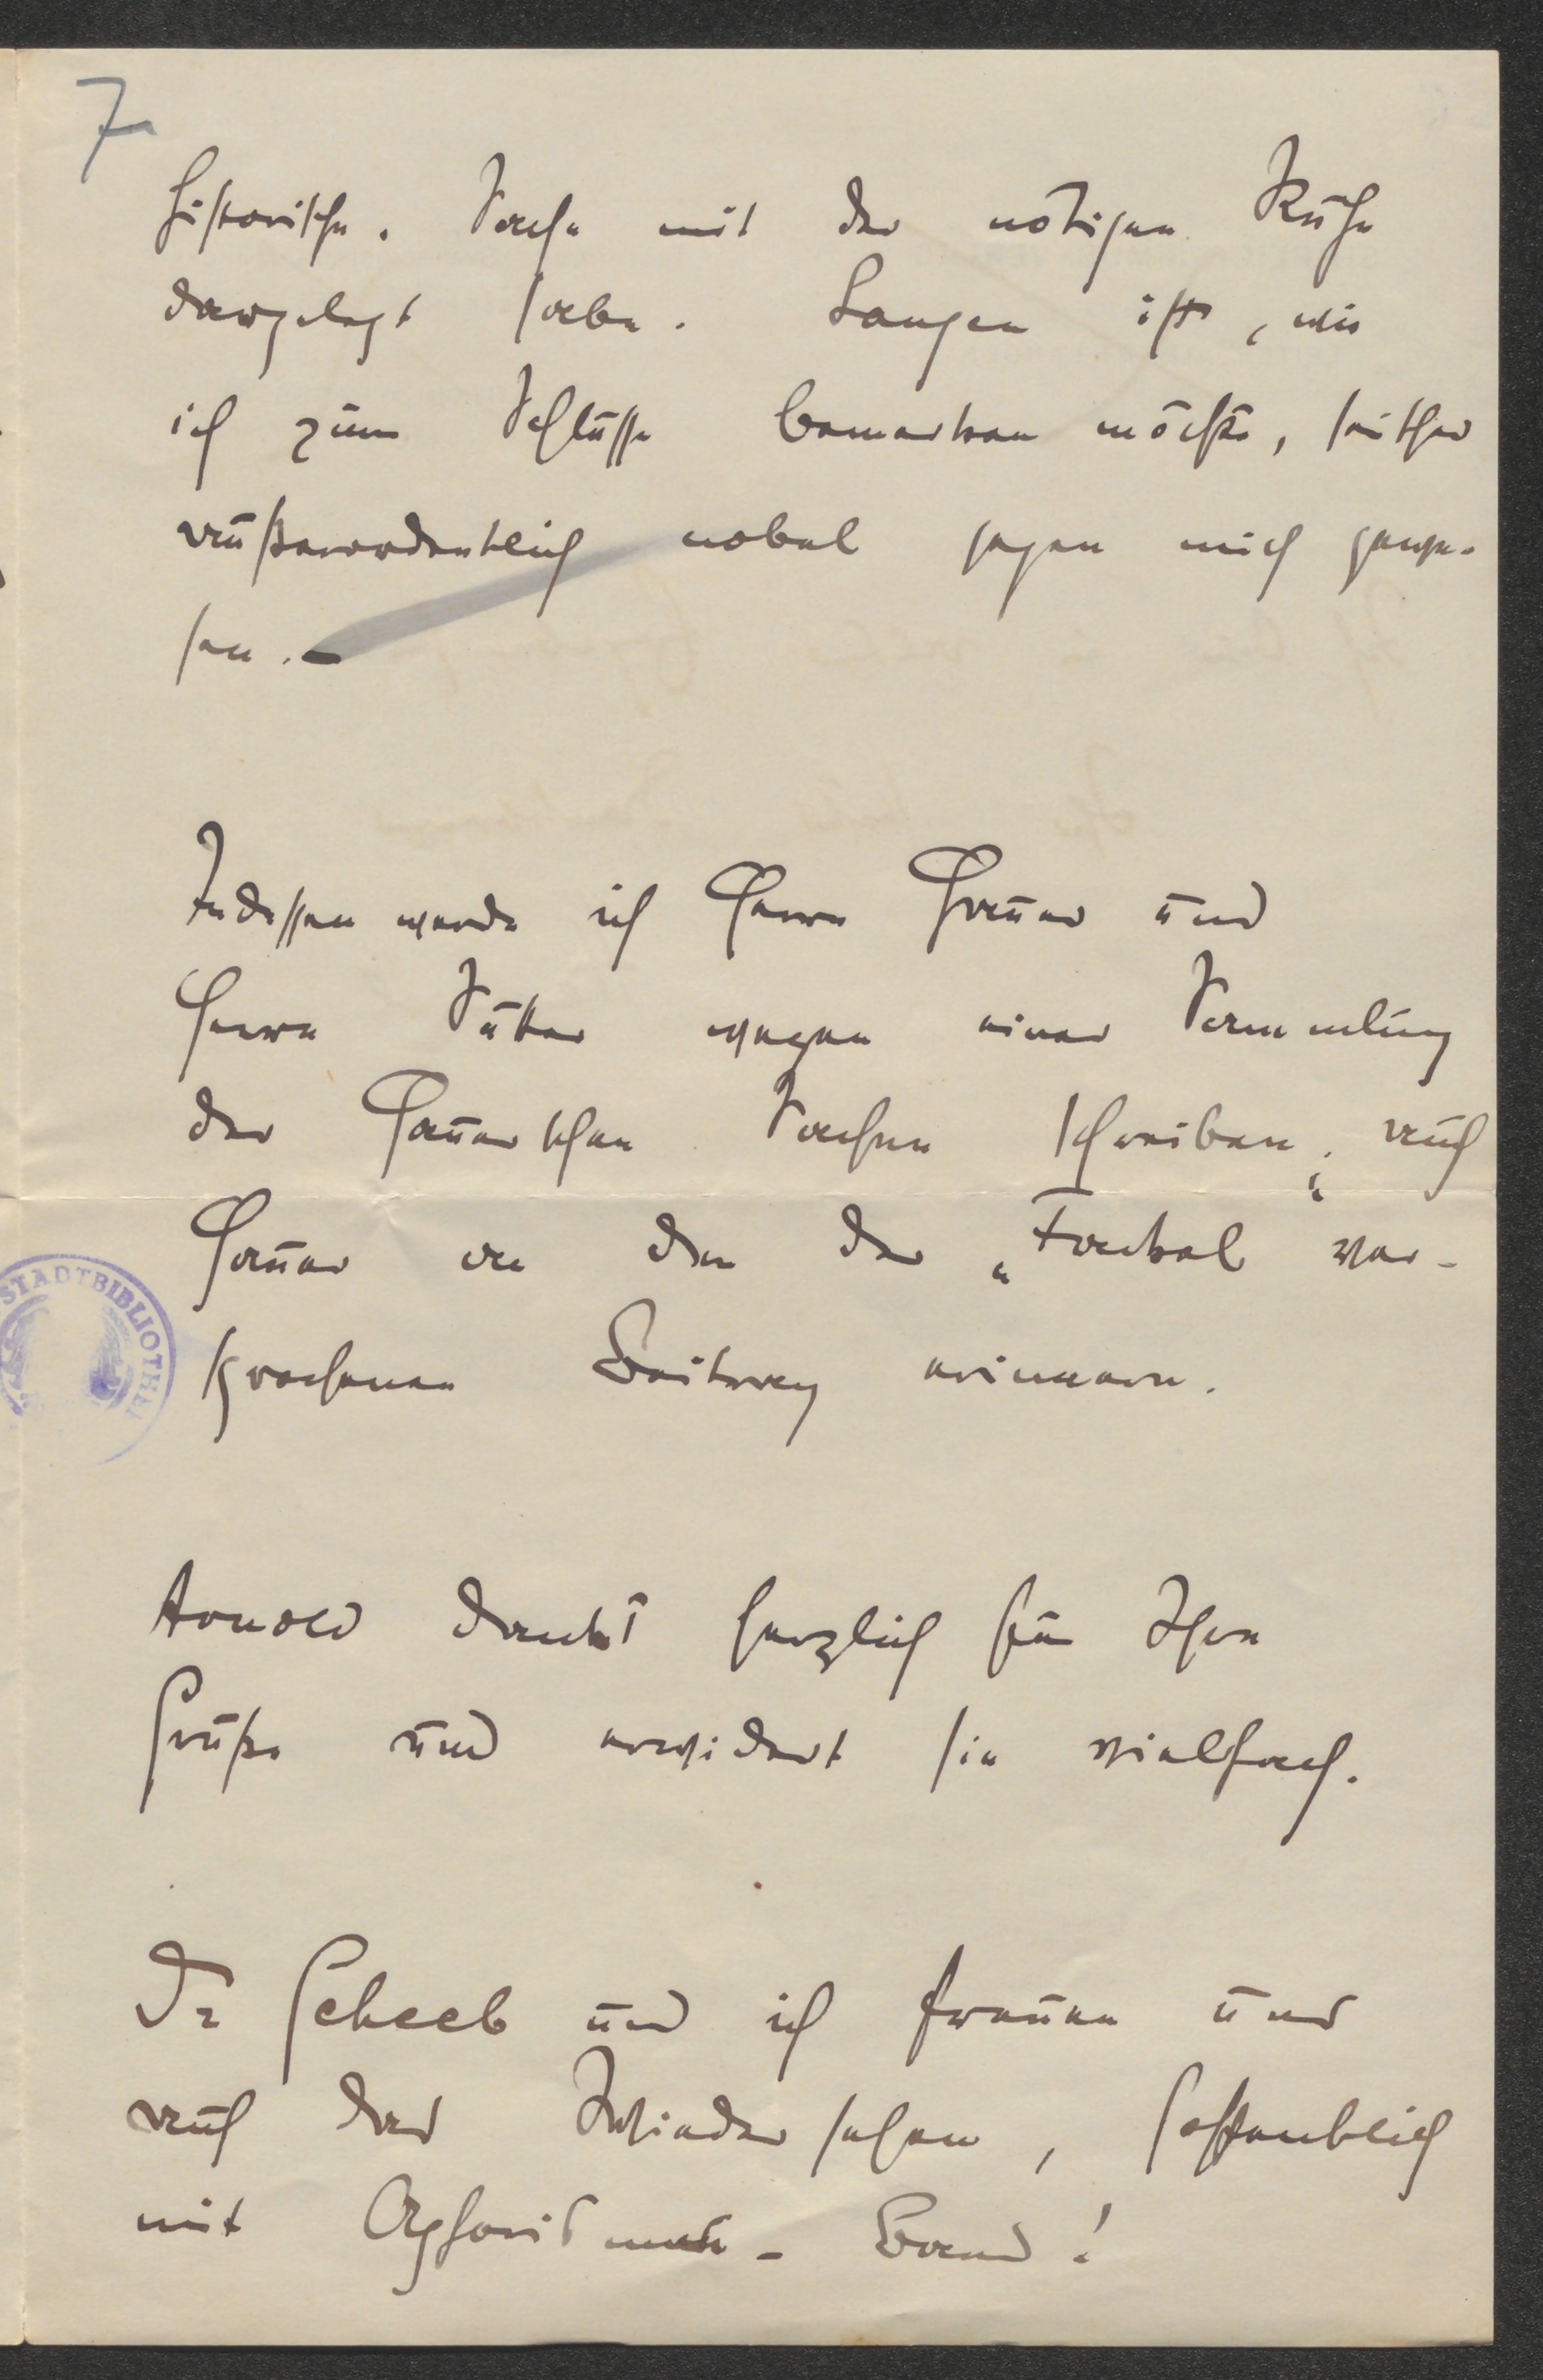 7
historische Sache mit der nötigen Ruhe
dargelegt habe. Langen ist, wie
ich zum Schlusse bemerken möchte, seither
außerordentlich nobel gegen mich gewe-
sen. –
Indessen werde ich Herrn Hauer und
Herrn wegen einer Sammlung
der Hauerschen Sachen schreiben, auch
Hauer an den der „Fackel“ ver-
sprochenen Beitrag erinnern.
STADTBIBLIOTHEK
Arnold dankt herzlich für Ihre
Grüße und erwidert sie vielfach.
Dr Geheeb und ich freuen uns
auf das Wiedersehen, hoffentlich
mit Aphorismen-Band!